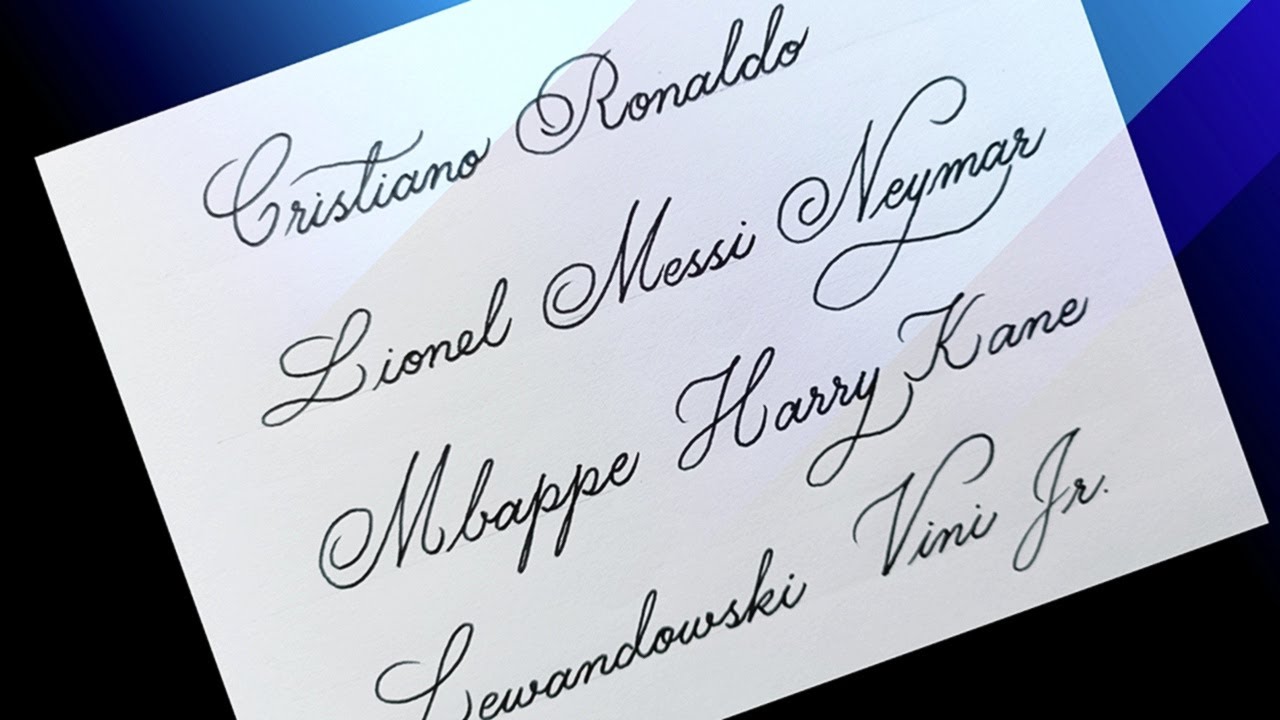 Cristiano Ronaldo
Lionel Messi Neymar
Mbappe Harry Kane
Lewandowski Vini Jr.